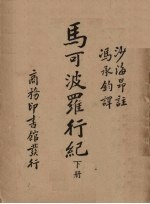 沙海昂註
馮承鈞譯
馬可波羅行紀
下册
商務印書館發行